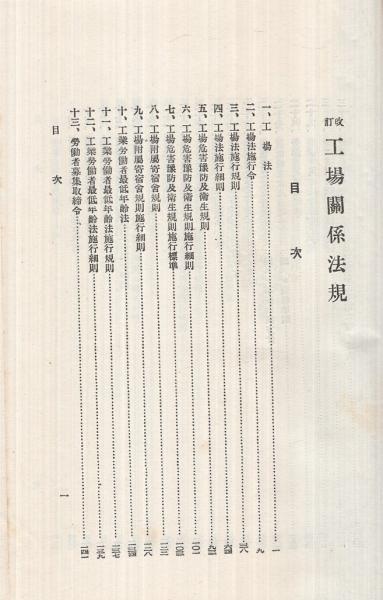 改訂 工場關係法規
目次
一、工場法……一
二、工場法施行令……九
三、工場法施行規則……三八
四、工場法施行細則……六四
五、工場危害豫防及衞生規則……九三
六、工場危害豫防及衞生規則施行細則……一〇一
七、工場危害豫防及衞生規則施行標準……一〇三
八、工場附屬寄宿舍規則……一二三
九、工場附屬寄宿舍規則施行細則……一二八
十、工業勞働者最低年齡法……一三四
十一、工業勞働者最低年齡法施行規則……一三七
十二、工業勞働者最低年齡法施行細則……一三九
十三、勞働者募集取締令……一四一
目次
一